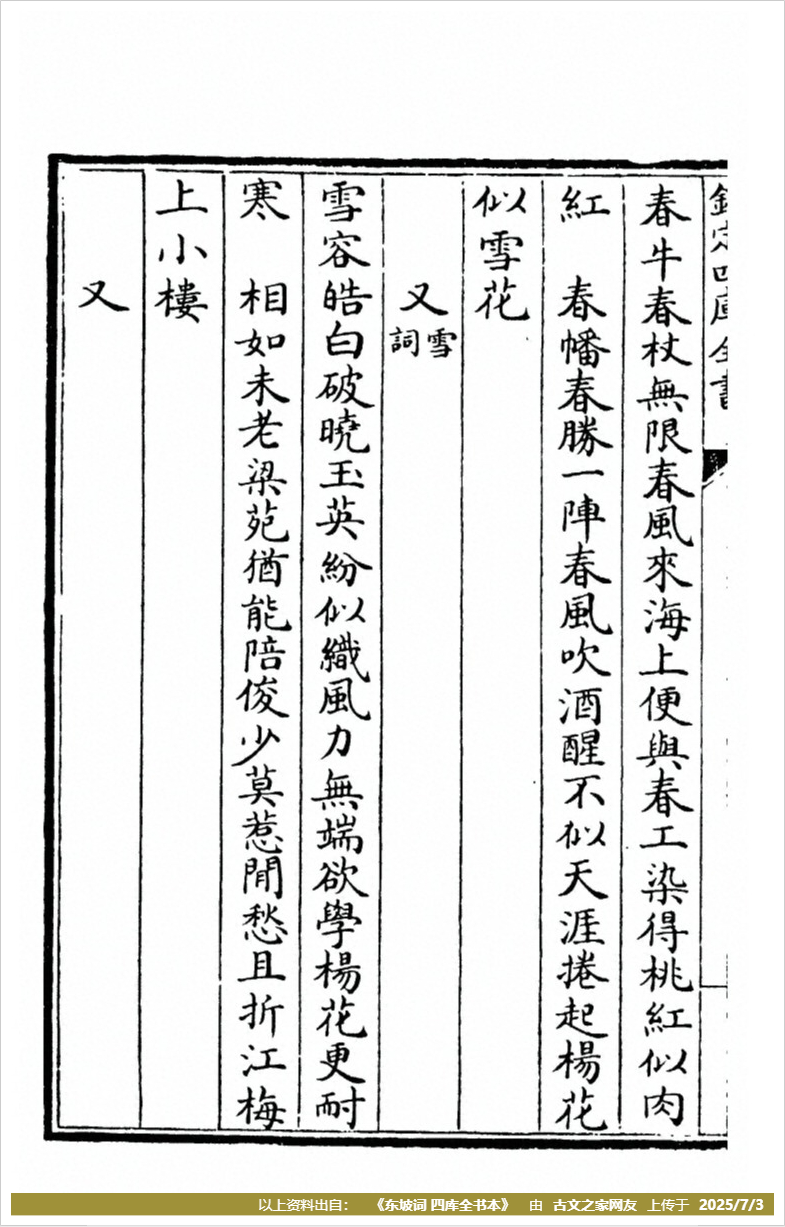 欽定四庫全書
春牛春杖無限春風來海上便與春工染得桃紅似肉
紅　春幡春勝一陣春風吹酒醒不似天涯捲起楊花
似雪花
又雪詞
雪容皓白破曉玉英紛似織風力無端欲學楊花更耐
寒　相如未老梁苑猶能陪俊少莫惹閒愁且折江梅
上小樓
又
以上资料出自： 《东坡词 四库全书本》 由 古文之家网友 上传于 2025/7/3